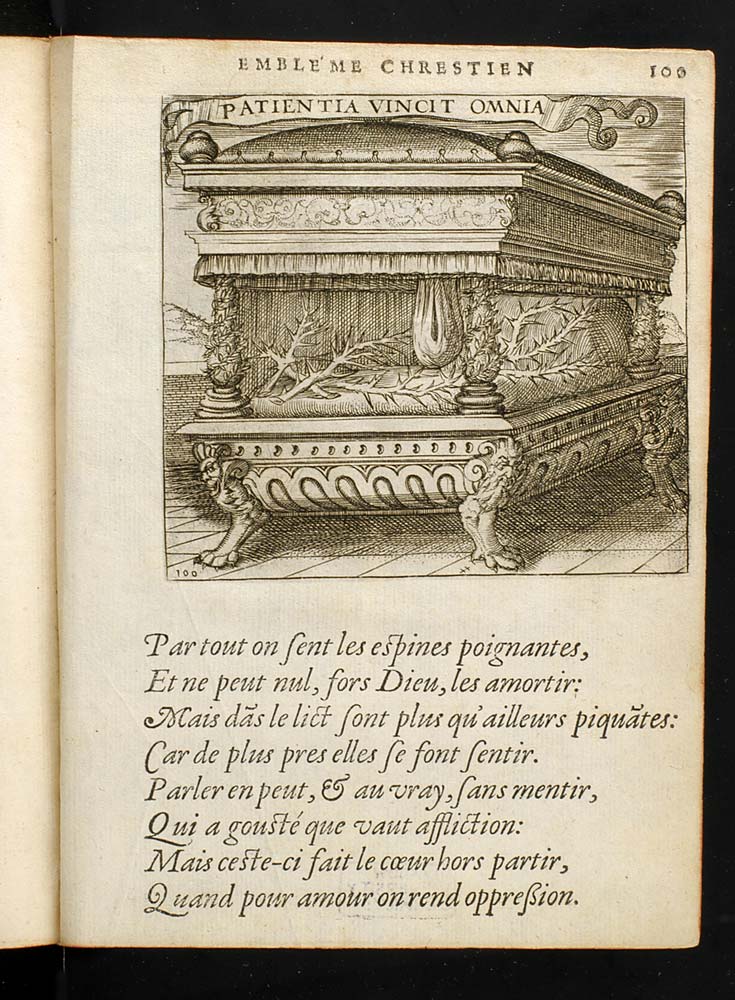 EMBLE'ME CHRESTIEN 100
PATIENTIA VINCIT OMNIA
100
Par tout on ſent les eſpines poignantes,
Et ne peut nul, fors Dieu, les amortir:
Mais dãs le lict ſont plus qu'ailleurs piquãtes:
Car de plus pres elles ſe font ſentir.
Parler en peut, & au vray, ſans mentir,
Qui a gouſté que vaut affliction:
Mais ceſte-ci fait le cœur hors partir,
Quand pour amour on rend oppreſſion.